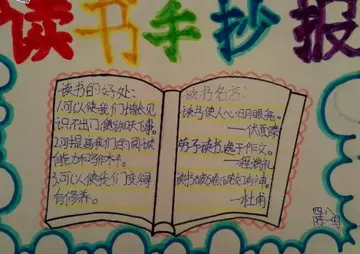 读书手抄报
读书的好处:
1.可以使我们增长见
识不出门
2.可提高我们的阅读
能力和写作水平。
3.可以使我们变得
有修养。
读书名言:
读书使人心明眼亮。
——伏尔泰
劳于读书,逸于作文。
——程端礼
读书破万卷,下笔如有神。
——杜甫